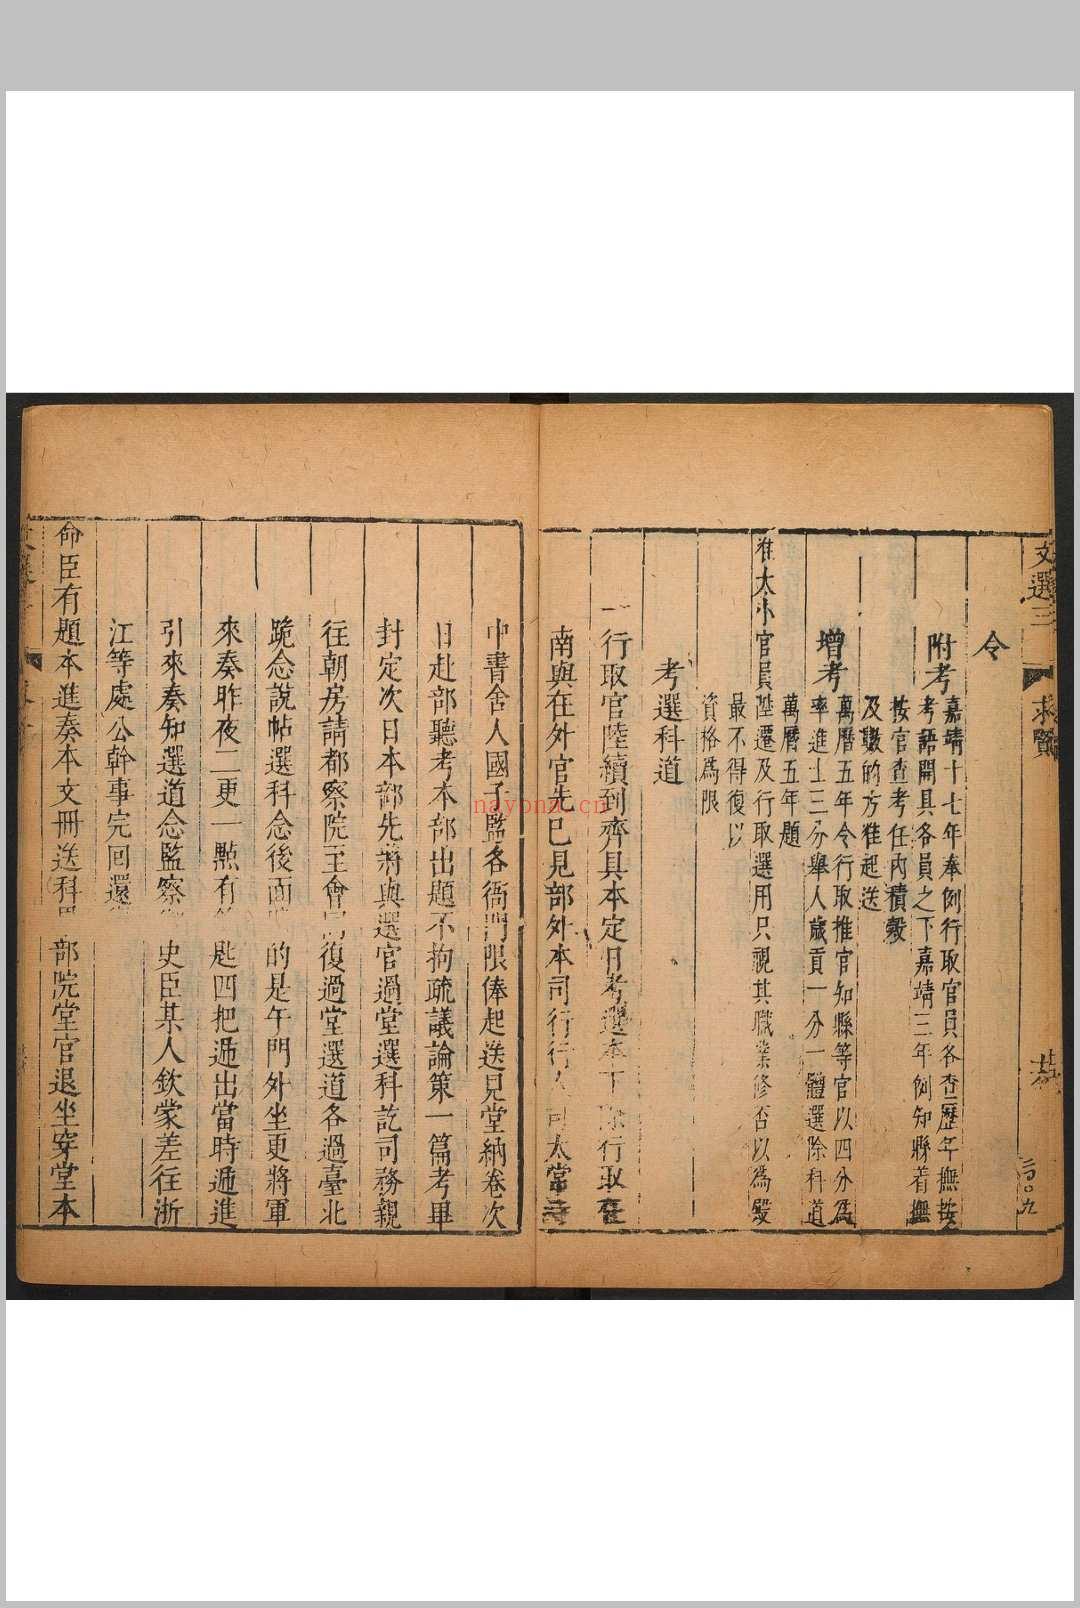 文選三
求賢
三百〇九
令
附考
嘉靖十七年奉例行取官員各查歷年撫按
考語開具各員之下嘉靖三年例知縣着撫
按官查考任內積穀
及數的方准起送
增考
萬曆五年令行取推官知縣等官以四分爲
率進士三分舉人歲貢一分一體選除科道
萬曆五年題
准大小官員陞遷及行取選用只視其職業修否以爲殿
最不得復以
資格爲限
考選科道
一行取官陸續到齊具本定日考選本下除行取在
南與在外官先已見部外本司行行人司太常寺
中書舍人國子監各衙門限俸起送見堂納卷次
日赴部聽考本部出題不拘疏議論策一篇考畢
封定次日本部先將與選官過堂選科訖司務親
往朝房請都察院至會同復過堂選道各過臺北
跪念說帖選科念後面 的是午門外坐更將軍
來奏昨夜二更一點有 匙四把遞出當時遞進
引來奏知選道念監察御史臣某人欽蒙差往浙
江等處公幹事完回還
命臣有題本進奏本文冊送科 部院堂官退坐穿堂本
nayona.cn